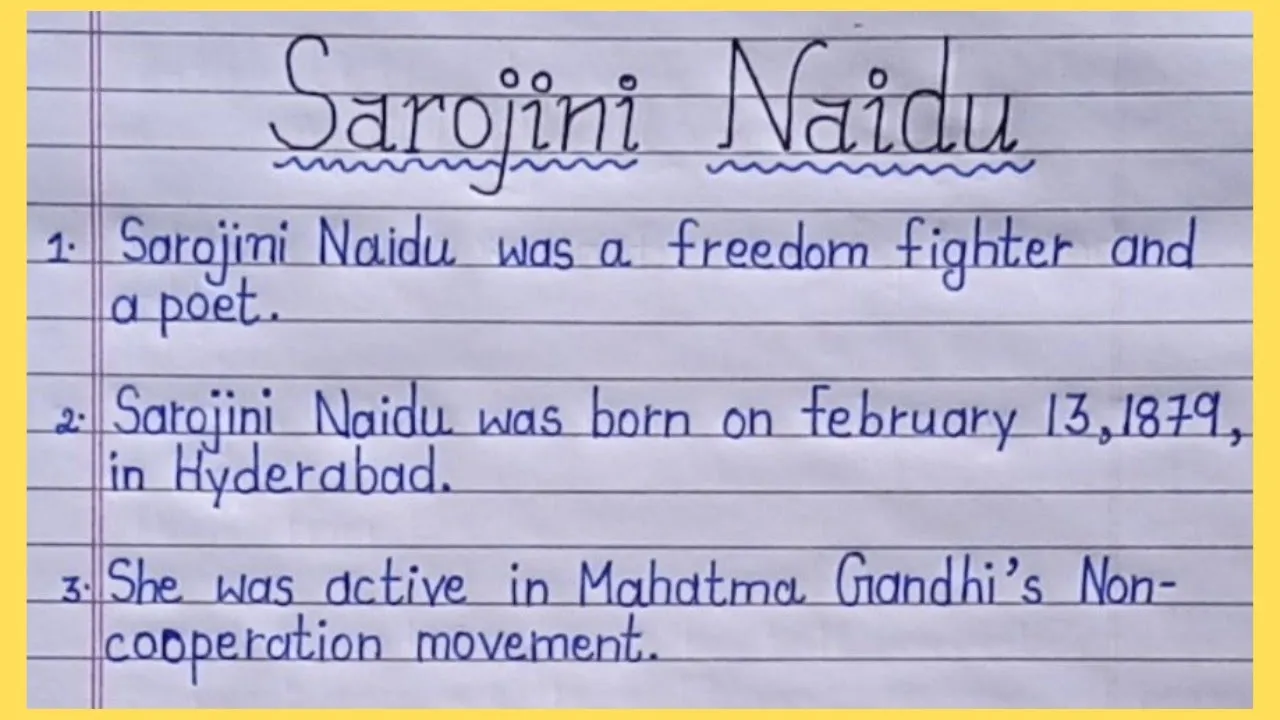 Sarojini Naidu
1. Sarojini Naidu was a freedom fighter and
a poet.
2. Sarojini Naidu was born on february 13, 1879,
in Hyderabad.
3. She was active in Mahatma Gandhi's Non-
cooperation movement.